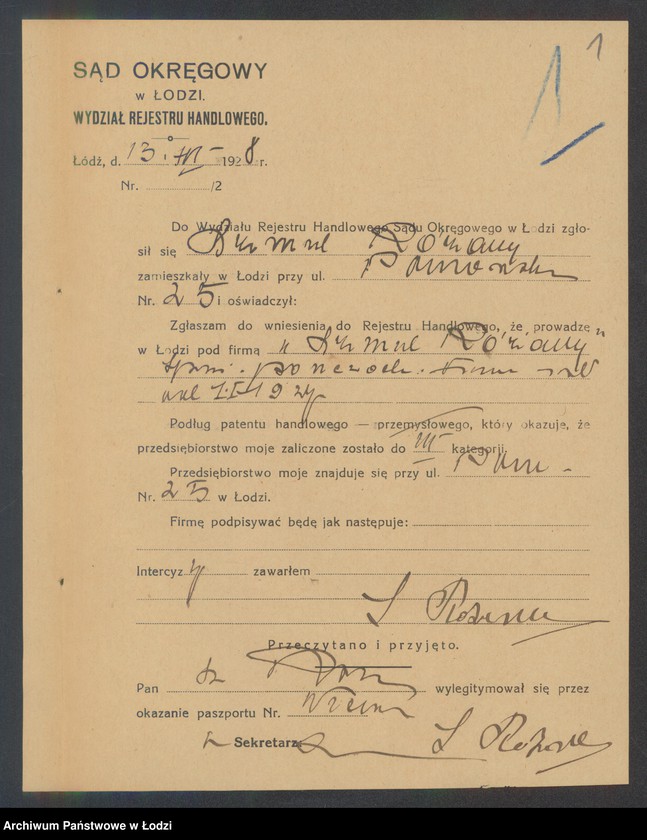 1
SĄD OKRĘGOWY
w ŁODZI.
WYDZIAŁ REJESTRU HANDLOWEGO.
Łódź, d. 13. III 1928 r.
Nr. /2
Do Wydziału Rejestru Handlowego Sądu Okręgowego w Łodzi zgło-
sił się Szmul Różany
zamieszkały w Łodzi przy ul.
Nr. 25 i oświadczył:
Zgłaszam do wniesienia do Rejestru Handlowego, że prowadzę
w Łodzi pod firmą "Szmul Różany"
pończoch.
Podług patentu handlowego — przemysłowego, który okazuje, że
przedsiębiorstwo moje zaliczone zostało do III kategorji.
Przedsiębiorstwo moje znajduje się przy ul.
Nr. 25 w Łodzi.
Firmę podpisywać będę jak następuje:
Intercyzy zawarłem
S Różany
Przeczytano i przyjęto.
Pan wylegitymował się przez
okazanie paszportu Nr.
Sekretarz
S Różany
Archiwum Państwowe w Łodzi